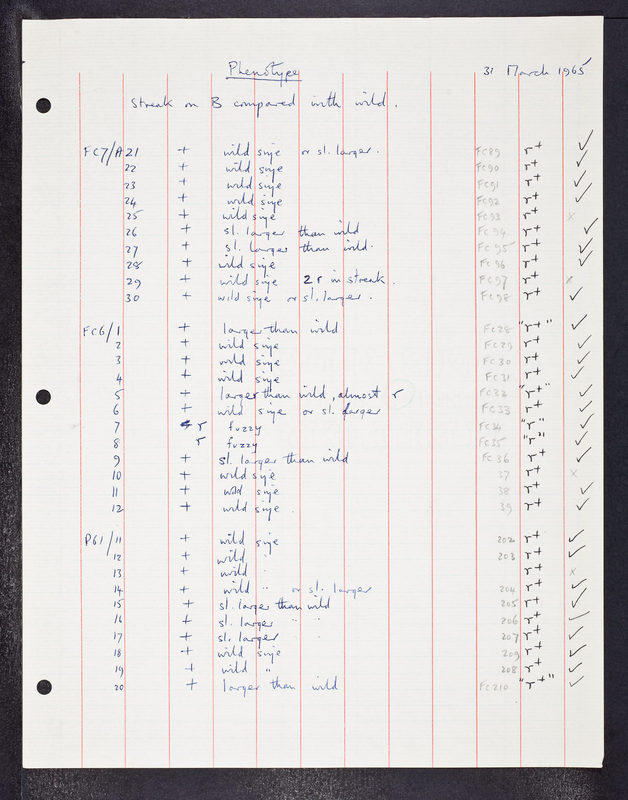 Phenotype 31 March 1965
Streak on B compared with wild.
FC7/A21 + wild size or sl. larger. FC89 r+ ✓
22 + wild size FC90 r+ ✓
23 + wild size FC91 r+ ✓
24 + wild size FC92 r+ ✓
25 + wild size FC93 r+ x
26 + sl. larger than wild FC94 r+ ✓
27 + sl. larger than wild. FC95 r+ ✓
28 + wild size FC96 r+ ✓
29 + wild size 2 r in streak. FC97 r+ x
30 + wild size or sl. larger. FC98 r+ ✓
FC6/1 + larger than wild FC28 "r+" ✓
2 + wild size FC29 r+ ✓
3 + wild size FC30 r+ ✓
4 + wild size FC31 r+ ✓
5 + larger than wild, almost r FC32 "r+" ✓
6 + wild size or sl. larger FC33 r+ ✓
7 r fuzzy FC34 "r" ✓
8 r fuzzy FC35 "r" ✓
9 + sl. larger than wild FC36 r+ ✓
10 + wild size 37 r+ x
11 + wild size 38 r+ ✓
12 + wild size. 39 r+ ✓
P61/11 + wild size 202 r+ ✓
12 + wild " 203 r+ ✓
13 + wild " r+ x
14 + wild " or sl. larger 204 r+ ✓
15 + sl. larger than wild 205 r+ ✓
16 + sl. larger " " 206 r+ ✓
17 + sl. larger " " 207 r+ ✓
18 + wild size 209 r+ ✓
19 + wild " 208 r+ ✓
20 + larger than wild FC210 "r+" ✓